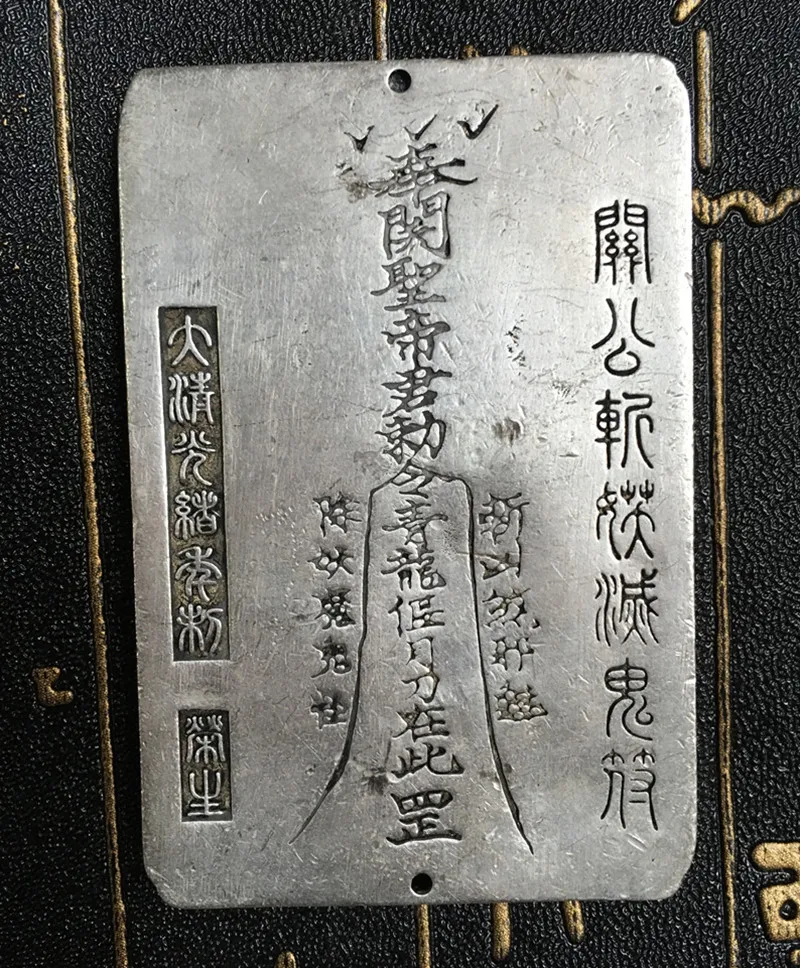 關公斬妖滅鬼符
奉関聖帝君勅令青龍偃月刀在此罡
除妖魔
大清光緒年制
榮生